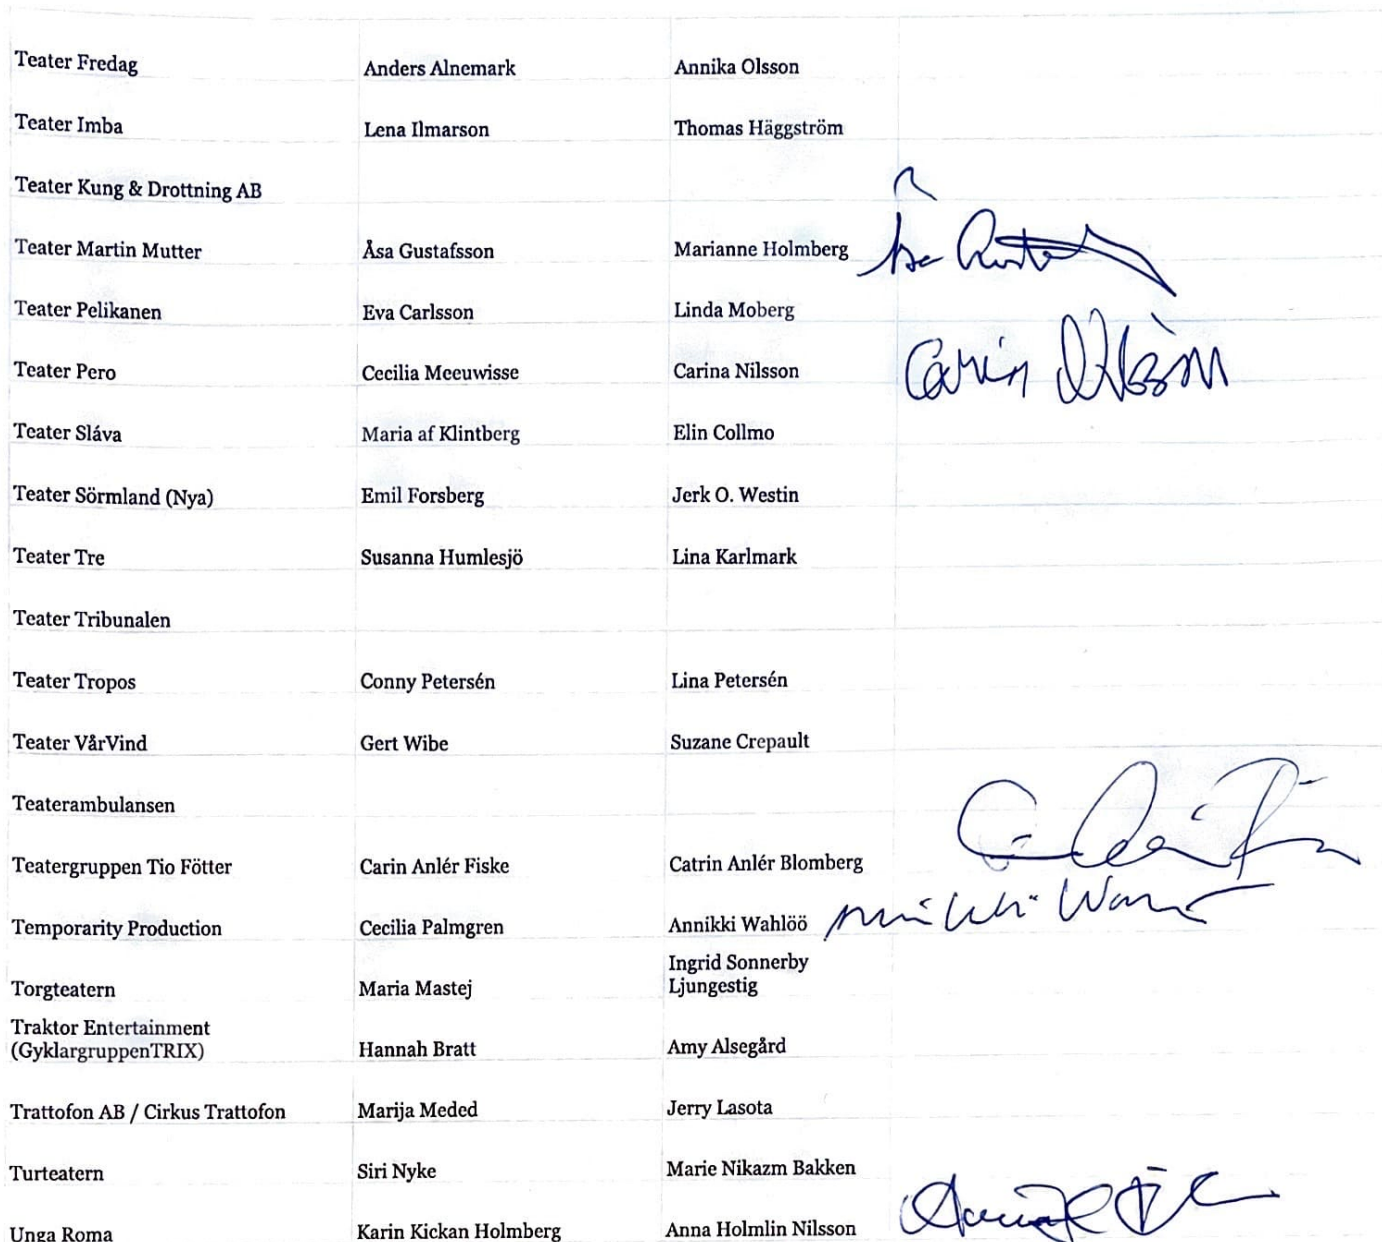 Teater Fredag Anders Alnemark Annika Olsson
Teater Imba Lena Ilmarson Thomas Häggström
Teater Kung & Drottning AB
Teater Martin Mutter Åsa Gustafsson Marianne Holmberg
Teater Pelikanen Eva Carlsson Linda Moberg
Teater Pero Cecilia Meeuwisse Carina Nilsson
Teater Sláva Maria af Klintberg Elin Collmo
Teater Sörmland (Nya) Emil Forsberg Jerk O. Westin
Teater Tre Susanna Humlesjö Lina Karlmark
Teater Tribunalen
Teater Tropos Conny Petersén Lina Petersén
Teater VårVind Gert Wibe Suzane Crepault
Teaterambulansen
Teatergruppen Tio Fötter Carin Anlér Fiske Catrin Anlér Blomberg
Temporarity Production Cecilia Palmgren Annikki Wahlöö
Torgteatern Maria Mastej Ingrid Sonnerby
Ljungestig
Traktor Entertainment
(GyklargruppenTRIX) Hannah Bratt Amy Alsegård
Trattofon AB / Cirkus Trattofon Marija Meded Jerry Lasota
Turteatern Siri Nyke Marie Nikazm Bakken
Unga Roma Karin Kickan Holmberg Anna Holmlin Nilsson